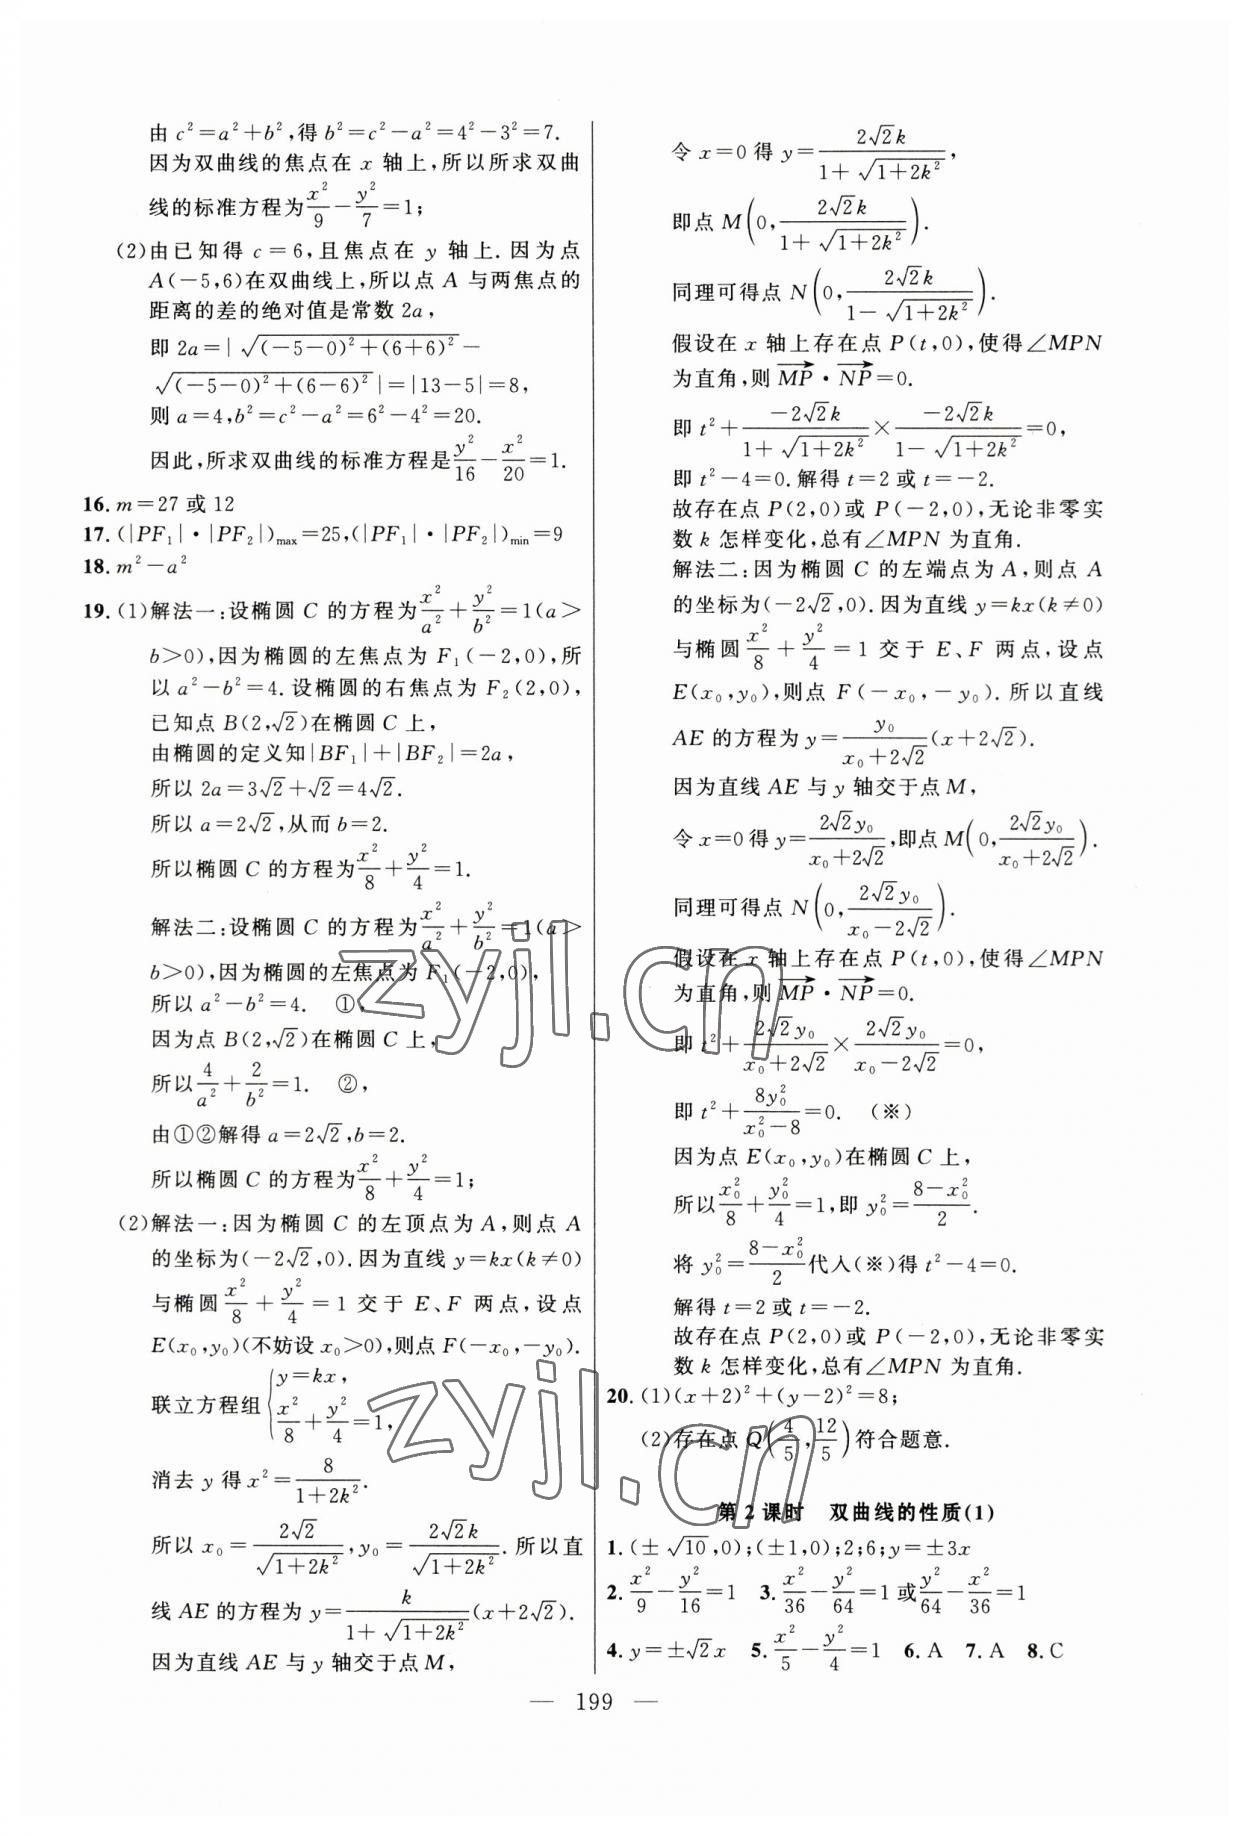 由 c²=a²+b²,得 b²=c²−a²=4²−3²=7.
因为双曲线的焦点在 x 轴上,所以所求双曲
线的标准方程为x²/9−y²/7=1;
(2)由已知得 c=6,且焦点在 y 轴上.因为点
A(−5,6)在双曲线上,所以点 A 与两焦点的
距离的差的绝对值是常数 2a,
即 2a=|√((−5−0)²+(6+6)²)−
√((−5−0)²+(6−6)²)|=|13−5|=8,
则 a=4,b²=c²−a²=6²−4²=20.
因此,所求双曲线的标准方程是y²/16−x²/20=1.
16. m=27 或 12
17. (|PF₁|·|PF₂|)max=25,(|PF₁|·|PF₂|)min=9
18. m²−a²
19. (1)解法一:设椭圆 C 的方程为x²/a²+y²/b²=1(a>
b>0),因为椭圆的左焦点为 F₁(−2,0),所
以 a²−b²=4.设椭圆的右焦点为 F₂(2,0),
已知点 B(2,√2)在椭圆 C 上,
由椭圆的定义知|BF₁|+|BF₂|=2a,
所以 2a=3√2+√2=4√2.
所以 a=2√2,从而 b=2.
所以椭圆 C 的方程为x²/8+y²/4=1.
解法二:设椭圆 C 的方程为x²/a²+y²/b²=1(a>
b>0),因为椭圆的左焦点为 F₁(−2,0),
所以 a²−b²=4. ①,
因为点 B(2,√2)在椭圆 C 上,
所以4/a²+2/b²=1. ②,
由①②解得 a=2√2,b=2.
所以椭圆 C 的方程为x²/8+y²/4=1;
(2)解法一:因为椭圆 C 的左顶点为 A,则点 A
的坐标为(−2√2,0).因为直线 y=kx(k≠0)
与椭圆x²/8+y²/4=1 交于 E、F 两点,设点
E(x₀,y₀)(不妨设 x₀>0),则点 F(−x₀,−y₀).
联立方程组{y=kx, x²/8+y²/4=1,
消去 y 得 x²=8/(1+2k²).
所以 x₀=2√2/√(1+2k²),y₀=2√2k/√(1+2k²).所以直
线 AE 的方程为 y=k/(1+√(1+2k²))(x+2√2).
因为直线 AE 与 y 轴交于点 M,
令 x=0 得 y=2√2k/(1+√(1+2k²)),
即点 M(0,2√2k/(1+√(1+2k²))).
同理可得点 N(0,2√2k/(1−√(1+2k²))).
假设在 x 轴上存在点 P(t,0),使得∠MPN
为直角,则 MP→·NP→=0.
即 t²+−2√2k/(1+√(1+2k²))×−2√2k/(1−√(1+2k²))=0,
即 t²−4=0.解得 t=2 或 t=−2.
故存在点 P(2,0)或 P(−2,0),无论非零实
数 k 怎样变化,总有∠MPN 为直角.
解法二:因为椭圆 C 的左端点为 A,则点 A
的坐标为(−2√2,0).因为直线 y=kx(k≠0)
与椭圆x²/8+y²/4=1 交于 E、F 两点,设点
E(x₀,y₀),则点 F(−x₀,−y₀).所以直线
AE 的方程为 y=y₀/(x₀+2√2)(x+2√2).
因为直线 AE 与 y 轴交于点 M,
令 x=0 得 y=2√2y₀/(x₀+2√2),即点 M(0,2√2y₀/(x₀+2√2)).
同理可得点 N(0,2√2y₀/(x₀−2√2)).
假设在 x 轴上存在点 P(t,0),使得∠MPN
为直角,则 MP→·NP→=0.
即 t²+2√2y₀/(x₀+2√2)×2√2y₀/(x₀−2√2)=0,
即 t²+8y₀²/(x₀²−8)=0. (※)
因为点 E(x₀,y₀)在椭圆 C 上,
所以x₀²/8+y₀²/4=1,即 y₀²=(8−x₀²)/2.
将 y₀²=(8−x₀²)/2代入(※)得 t²−4=0.
解得 t=2 或 t=−2.
故存在点 P(2,0)或 P(−2,0),无论非零实
数 k 怎样变化,总有∠MPN 为直角.
20. (1)(x+2)²+(y−2)²=8;
(2)存在点 Q(4/5,12/5)符合题意.
第 2 课时 双曲线的性质(1)
1. (±√10,0);(±1,0);2;6;y=±3x
2. x²/9−y²/16=1 3. x²/36−y²/64=1 或y²/64−x²/36=1
4. y=±√2x 5. x²/5−y²/4=1 6. A 7. A 8. C
— 199 —
zyjl.cn
zyjl.cn